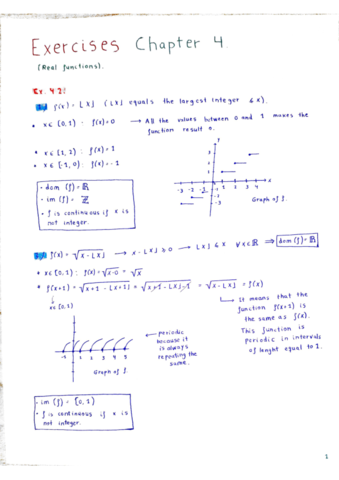 Exercises Chapter 4.
(Real functions).
Ex. 4.2:
f(x) = ⌊x⌋ (⌊x⌋ equals the largest integer ≤ x).
• x∈[0,1) : f(x)=0 → All the values between 0 and 1 makes the
function result 0.
• x∈[1,2) : f(x)=1
• x∈[-1,0): f(x)=-1
• dom (f) = ℝ
• im (f) = ℤ
• f is continuous if x is
not integer.
Y
3
2
1
-3 -2 -1 1 2 3 4 x
Graph of f.
f(x) = √x-⌊x⌋ → x-⌊x⌋ ≥ 0 → ⌊x⌋ ≤ x ∀x∈ℝ ⇒ dom(f)=ℝ
• x∈[0,1) : f(x)=√x-0 = √x
• f(x+1) = √x+1-⌊x+1⌋ = √x+1-⌊x⌋-1 = √x-⌊x⌋ = f(x)
x∈[0,1)
It means that the
function f(x+1) is
the same as f(x).
This function is
periodic in intervals
of lenght equal to 1.
periodic
because it
is always
repeating the
same.
-1 1 2 3 4 5
Graph of f.
• im (f) = [0,1)
• f is continuous if x is
not integer.
1